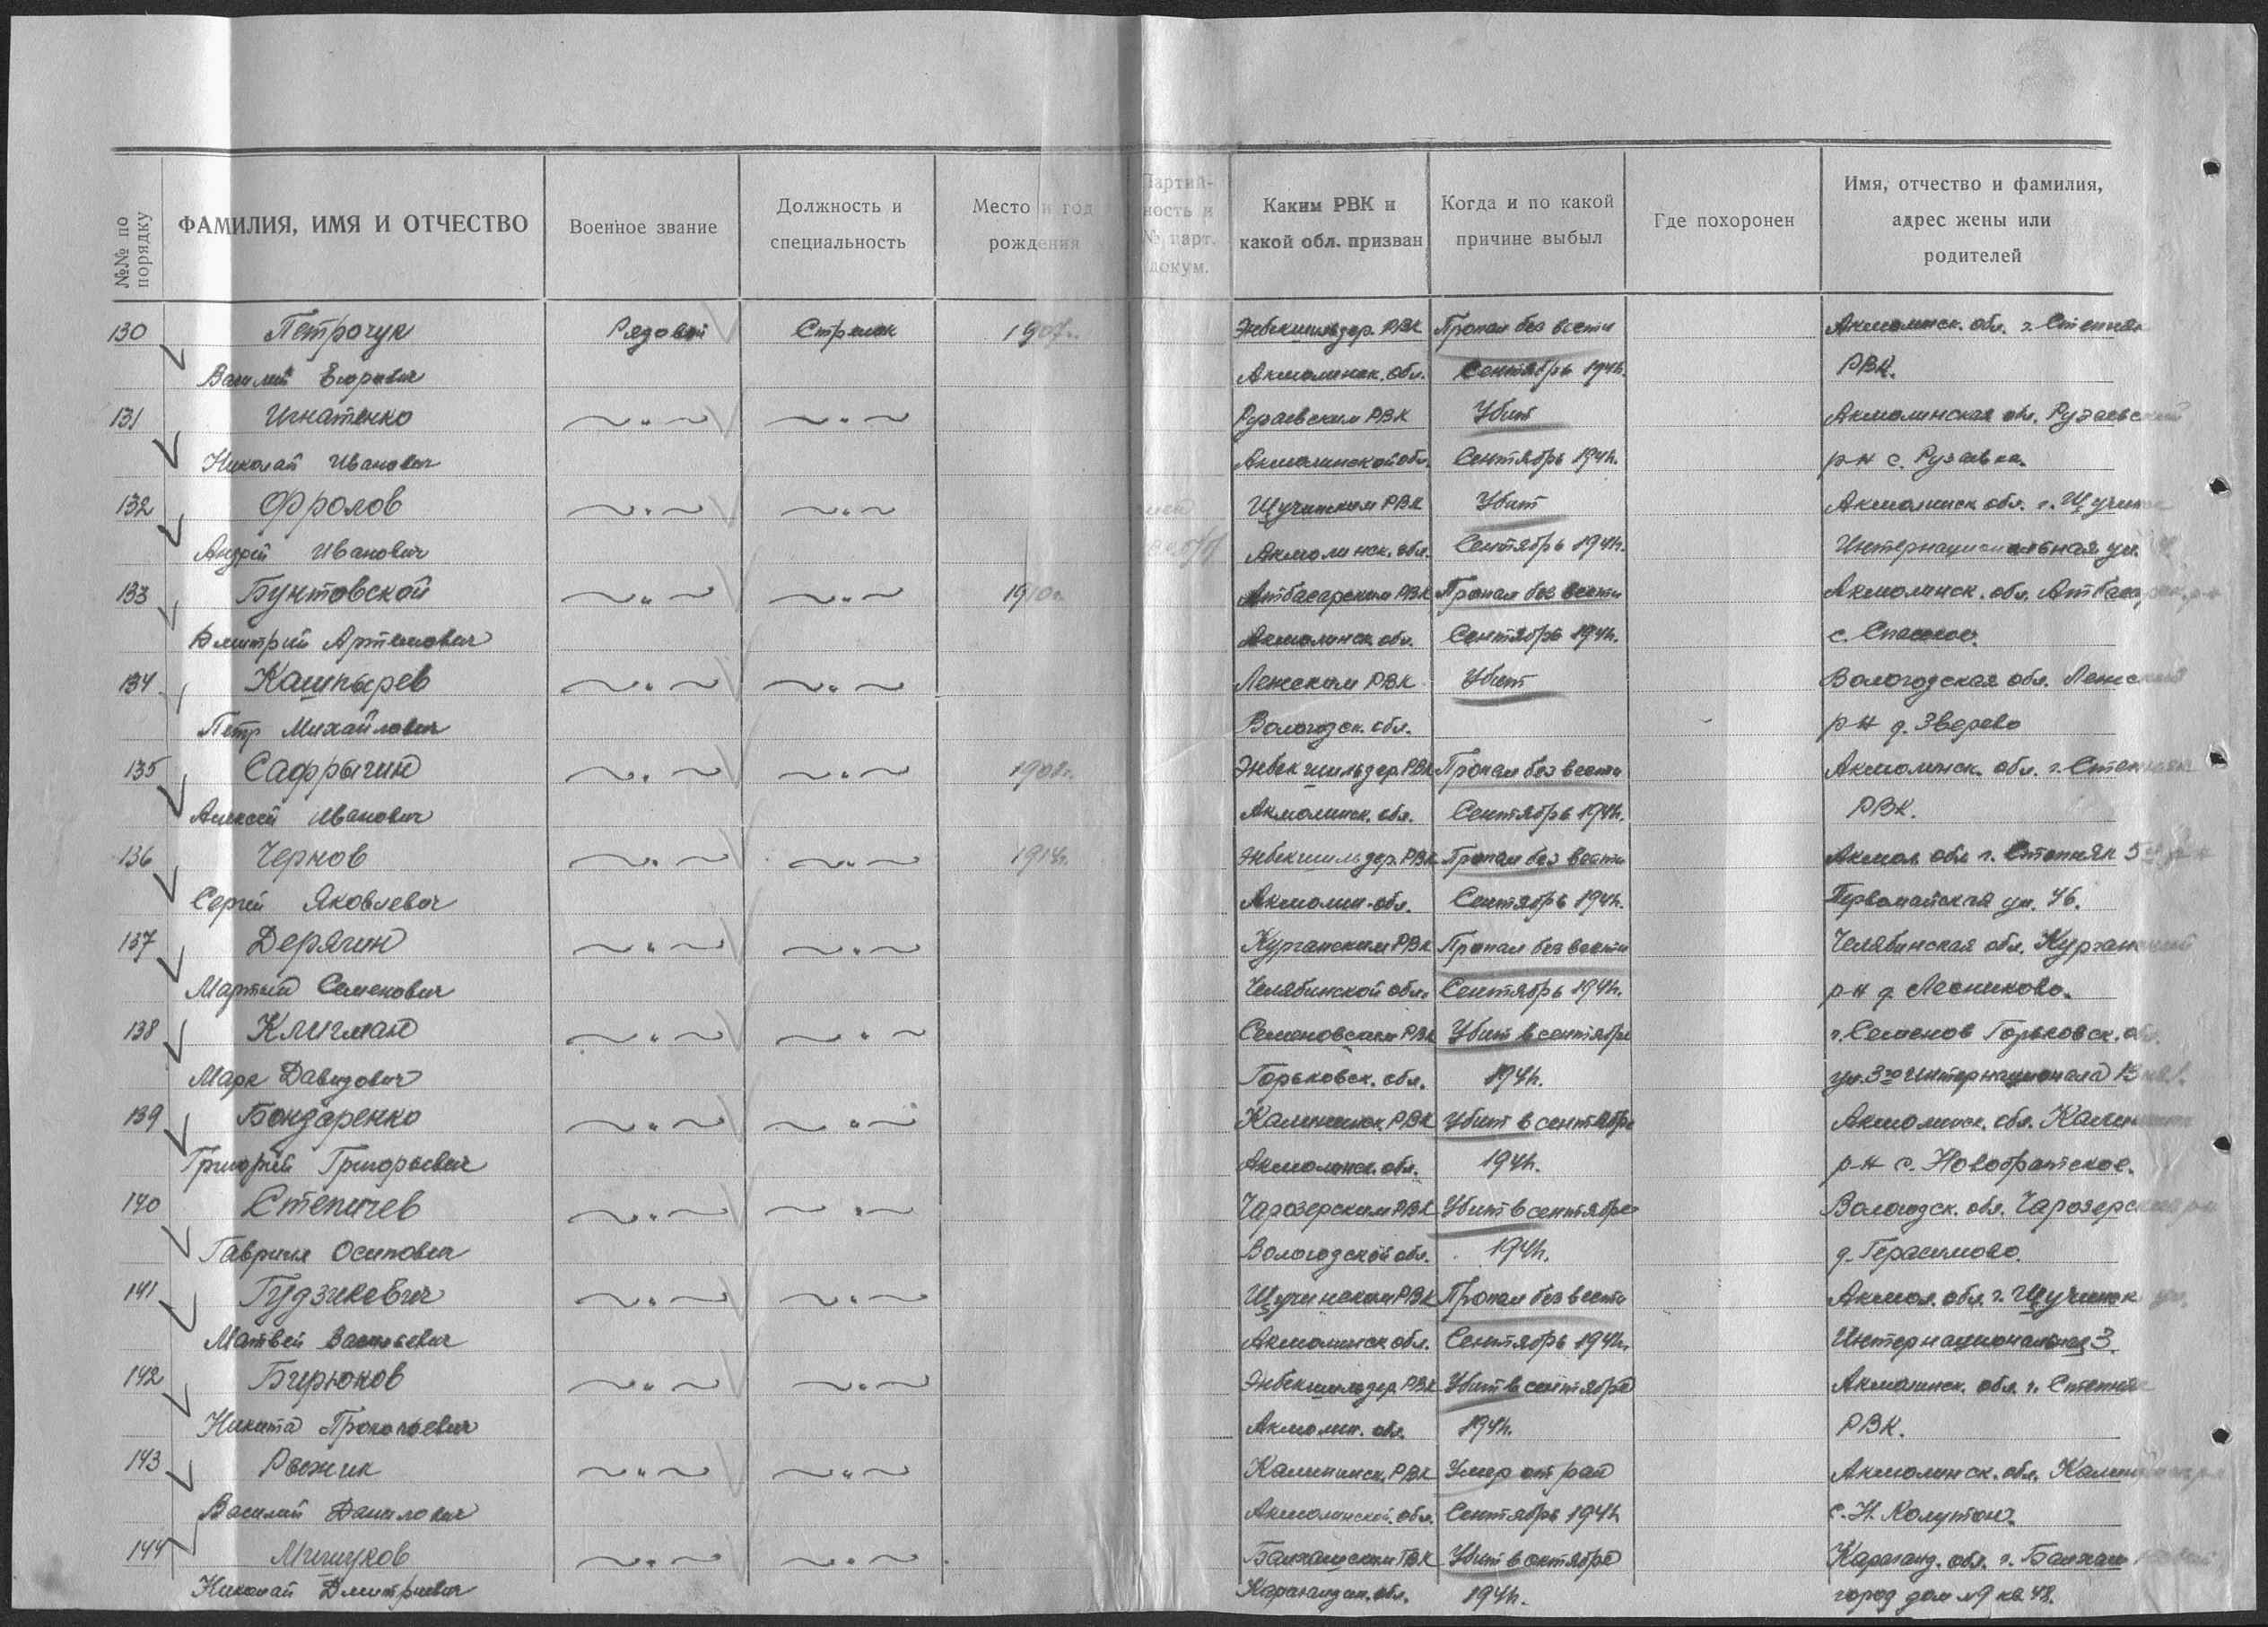 №№ по порядку
ФАМИЛИЯ, ИМЯ И ОТЧЕСТВО
Военное звание
Должность и специальность
Место и год рождения
Партий-ность и № парт. докум.
Каким РВК и какой обл. призван
Когда и по какой причине выбыл
Где похоронен
Имя, отчество и фамилия, адрес жены или родителей
130 Петрочук Рядовой Стрелок 1907г. Энбекшильдер. РВК Пропал без вести Акмолинск. обл. г. Степняк
Василий Егорович Акмолинск. обл. Сентябрь 194г. РВК.
131 Игнатенко ~"~ ~"~ Рузаевским РВК Убит Акмолинская обл. Рузаевский
Николай Иванович Акмолинской обл. Сентябрь 194г. р-н с. Рузаевка.
132 Фролов ~"~ ~"~ Щучинским РВК Убит Акмолинск обл. г. Щучинск
Андрей Иванович Акмолинск. обл. Сентябрь 194г. Интернациональная ул.
133 Бунтовской ~"~ ~"~ 1910г. Атбасарским РВК Пропал без вести Акмолинск. обл. Атбасарск. р-н
Дмитрий Артемович Акмолинск обл. Сентябрь 194г. с. Спасское.
134 Кашпырев ~"~ ~"~ Ленским РВК Убит Вологодская обл. Ленский
Петр Михайлович Вологодск. обл. р-н д. Зверево
135 Сафрыгин ~"~ ~"~ 1908г. Энбекшильдер. РВК Пропал без вести Акмолинск. обл. г. Степняк
Алексей Иванович Акмолинск. обл. Сентябрь 194г. РВК.
136 Чернов ~"~ ~"~ 1914г. Энбекшильдер. РВК Пропал без вести Акмол. обл г. Степняк 5
Сергей Яковлевич Акмолин. обл. Сентябрь 194г. Первомайская ул. 46.
137 Дерягин ~"~ ~"~ Курганским РВК Пропал без вести Челябинская обл. Курганский
Мартын Семенович Челябинской обл. Сентябрь 194г. р-н д. Лесниково.
138 Клигман ~"~ ~"~ Семеновским РВК Убит в сентябре г. Семенов Горьковск. обл.
Марк Давидович Горьковск. обл. 194г. ул. 3го Интернационала 13
139 Бондаренко ~"~ ~"~ Калининск. РВК Убит в сентябре Акмолинск. обл. Калининский
Григорий Григорьевич Акмолинск. обл. 194г. р-н с. Новобратское.
140 Степичев ~"~ ~"~ Чарозерским РВК Убит в сентябре Вологодск. обл. Чарозерский р-н
Гавриил Осипович Вологодской обл. 194г. д. Герасимово.
141 Гудзикевич ~"~ ~"~ Щучинским РВК Пропал без вести Акмол. обл. г. Щучинск ул.
Матвей Васильевич Акмолинск обл. Сентябрь 194г. Интернациональная 3.
142 Бирюков ~"~ ~"~ Энбекшильдер. РВК Убит в сентябре Акмолинск. обл. г. Степняк
Никита Прокопьевич Акмолин. обл. 194г. РВК.
143 Рыжик ~"~ ~"~ Калининск. РВК Умер от ран Акмолинск. обл. Калининск. р-н
Василий Данилович Акмолинской. обл. Сентябрь 194г с. Н. Колутон.
144 Мишуков ~"~ ~"~ Балхашским ГВК Убит в октябре Караганд. обл. г. Балхаш
Николай Дмитриевич Карагандин. обл. 194г. город дом №9 кв. 48.